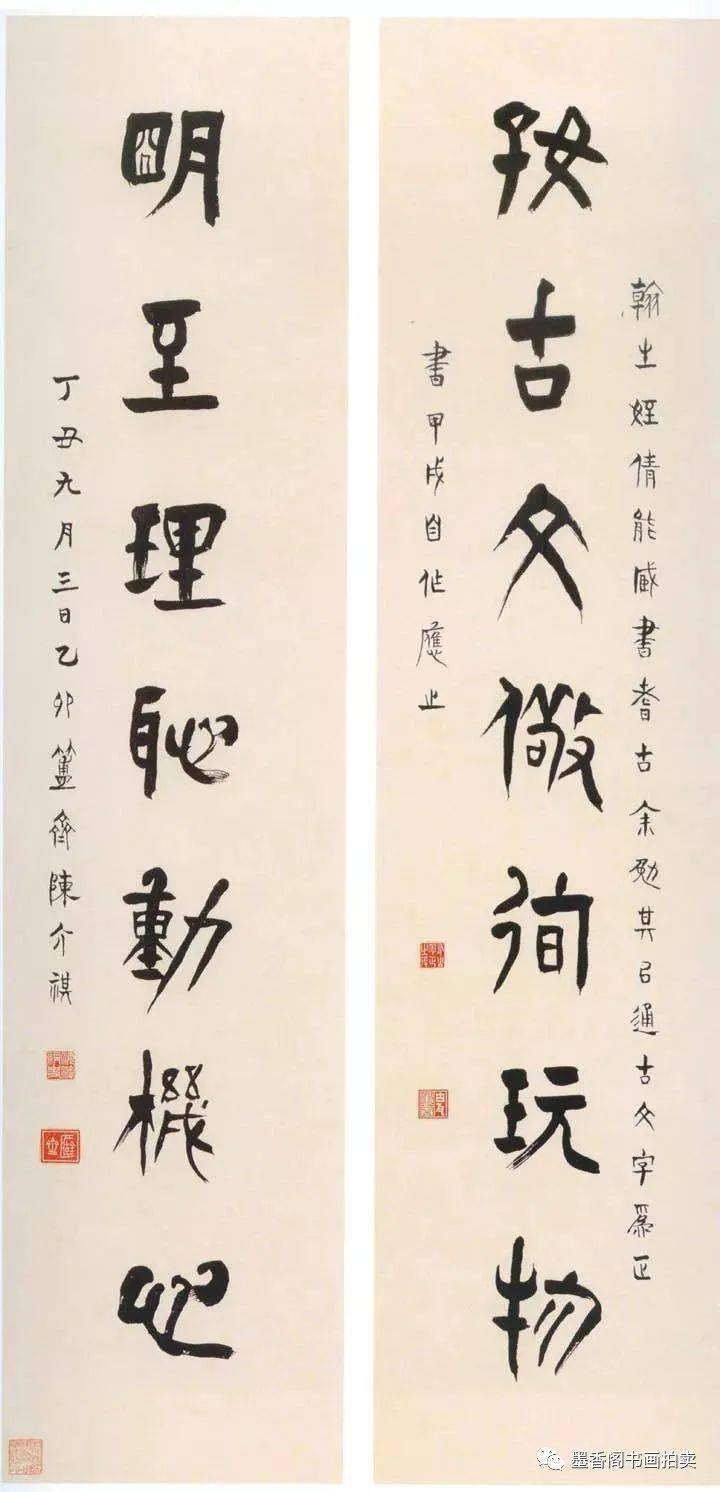 翰生姪倩能臧書耆古余勉其㠯通古文字爲正
好古文儆徇玩物
書甲戌自作應之
明至理恥動機心
丁丑九月三日乙卯簠齋陳介祺
墨香阁书画拍卖